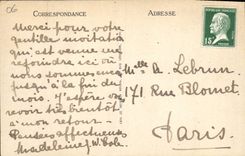 CORRESPONDANCE
ADRESSE
Merci pour votre
gentille invitation
qui est venue me
rejoindre ici où
nous sommes
jusqu'à la fin du
mois. J'espère
revoir très bientôt
à mon retour.
Pensées affectueuses
Madeleine
Melle A. Lebrun
171 Rue Blomet
Paris
15